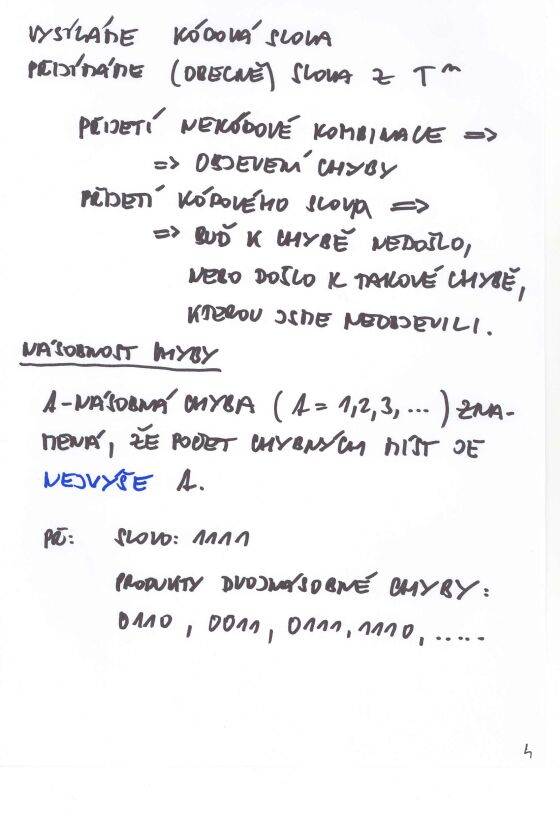 VYSÍLÁME KÓDOVÁ SLOVA
PŘIJÍMÁME (OBECNĚ) SLOVA Z Tⁿ
PŘIJETÍ NEKÓDOVÉ KOMBINACE =>
=> OBJEVENÍ CHYBY
PŘIJETÍ KÓDOVÉHO SLOVA =>
=> BUĎ K CHYBĚ NEDOŠLO,
NEBO DOŠLO K TAKOVÉ CHYBĚ,
KTEROU JSME NEOBJEVILI.
NÁSOBNOST CHYBY
A-NÁSOBNÁ CHYBA (A = 1,2,3, ...) ZNA-
MENÁ, ŽE POČET CHYBNÝCH MÍST JE
NEJVÝŠE A.
PŘ: SLOVO: 1111
PRODUKTY DVOJNÁSOBNÉ CHYBY:
0110, 0011, 0111, 1110, .....
4